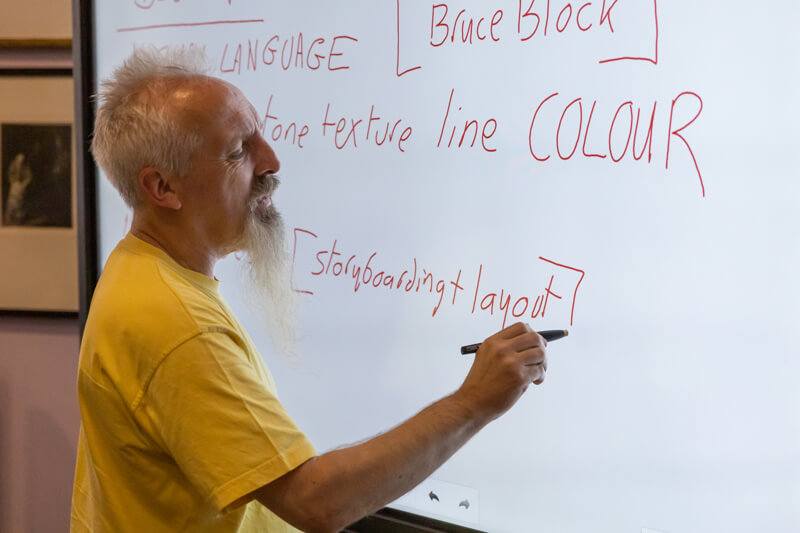 LANGUAGE [Bruce Block]
tone texture line COLOUR
[storyboarding + layout]